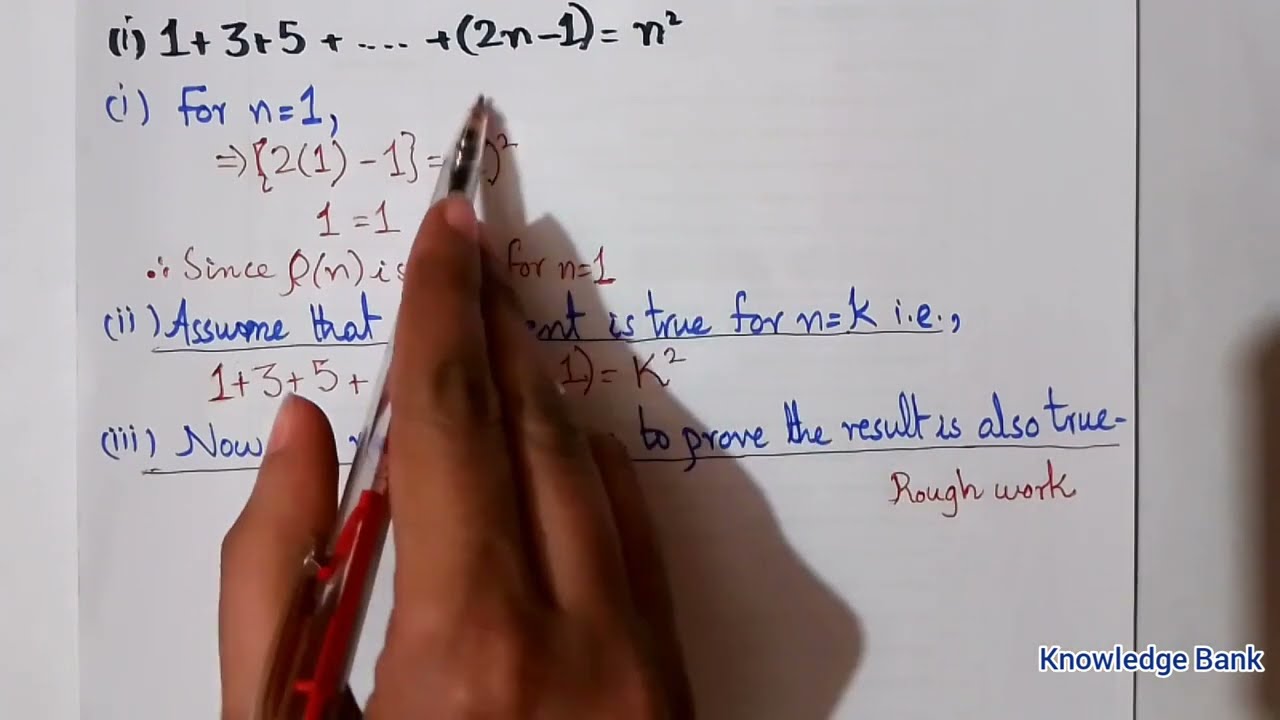 (i) 1+3+5+....+(2n-1)=n²
(i) For n=1,
⇒{2(1)-1}= )²
1=1
∴ Since P(n) is for n=1
(ii) Assume that is true for n=K i.e.,
1+3+5+ 1)=K²
(iii) Now to prove the result is also true-
Rough work
Knowledge Bank